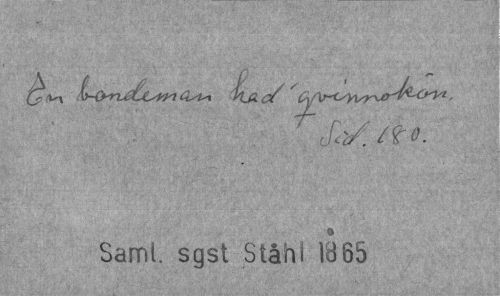 En bondeman had' qvinnokön.
Sid. 180.
Saml. sgst Ståhl 1865